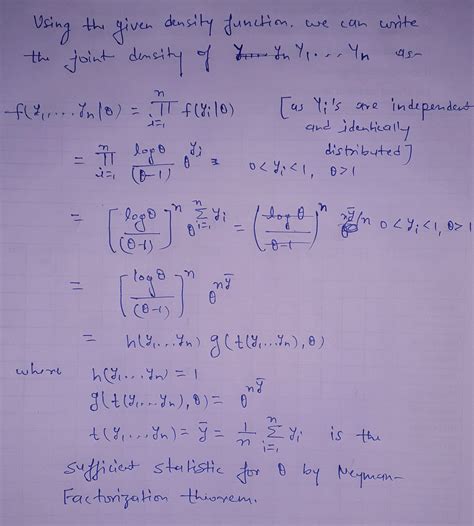 Using the given density function. we can write
the joint density of Y1...Yn as-
f(y1,...yn|θ) = ∏ⁿᵢ₌₁ f(yi|θ) [as Yi's are independent
and identically
distributed]
= ∏ⁿᵢ₌₁ logθ/(θ-1) θ^yi 0<yi<1, θ>1
= [logθ/(θ-1)]ⁿ θ^∑ⁿᵢ₌₁ yi = (logθ/θ-1)ⁿ 0<yi<1, θ>1
= [logθ/(θ-1)]ⁿ θ^nȳ
= h(y1...yn) g(t(y1,...yn),θ)
where h(y1...yn) = 1
g(t(y1,...yn),θ) = θ^nȳ
t(y1,...yn) = ȳ = 1/n ∑ⁿᵢ₌₁ yi is the
sufficient statistic for θ by Neyman-
Factorization theorem.